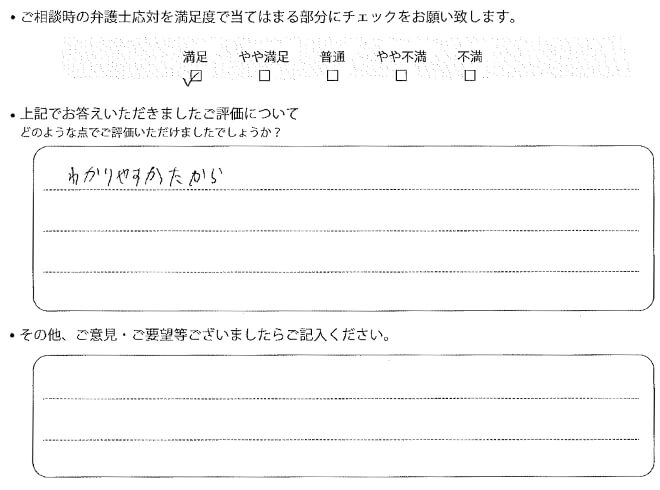 ・ご相談時の弁護士応対を満足度で当てはまる部分にチェックをお願い致します。
満足 やや満足 普通 やや不満 不満
☑ ☐ ☐ ☐ ☐
・上記でお答えいただきましたご評価について
どのような点でご評価いただけましたでしょうか？
わかりやすかたから
・その他、ご意見・ご要望等ございましたらご記入ください。